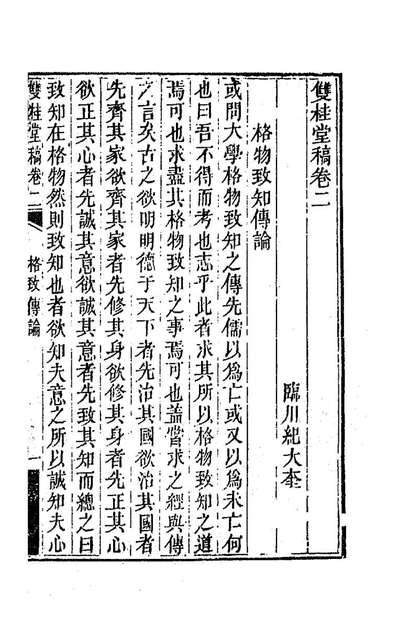 雙桂堂稿卷二
臨川紀大奎
格物致知傳論
或問大學格物致知之傳先儒以爲亡或又以爲未亡何
也曰吾不得而考也志乎此者求其所以格物致知之道
焉可也求盡其格物致知之事焉可也蓋嘗求之經與傳
之言矣古之欲明明德于天下者先治其國欲治其國者
先齊其家欲齊其家者先修其身欲修其身者先正其心
欲正其心者先誠其意欲誠其意者先致其知而總之曰
致知在格物然則致知也者欲知夫意之所以誠知夫心
雙桂堂稿卷二
格致傳論
一